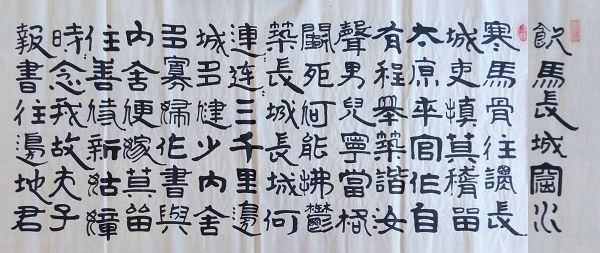 飲馬長城窟水
寒馬骨往謂長
城吏慎莫稽留
太原卒官作自
有程舉築諧汝
聲男兒寧當格
鬭死何能拂鬱
築長城長城何
連連三千里邊
城多健少內舍
多寡婦作書與
內舍便嫁莫留
住善侍新姑嫜
時念我故夫子
報書往邊地君